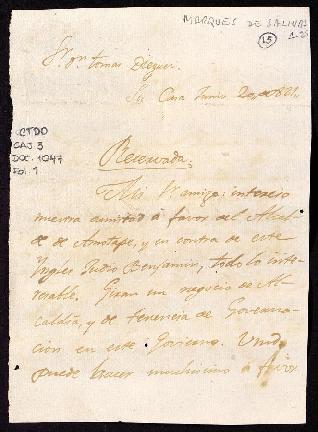 MARQUES DE SALINAS
15
1-25
Sr. Dn. Tomas Dieguez.
Su Casa Junio 20, de 821.
CTDO
CAJ. 3
DOC. 1047
FOL. 1
Reservada.
Mi amigo: intereso
nuestra amistad á favor del Alcal
de de Amotape, y en contra de este
Yngles Judio Benjamin, todo lo
Giran un negocio de Al
caldia, y de tenencia de Governa
cion en este Govierno. Vmd.
puede hacer muchisimo á favor